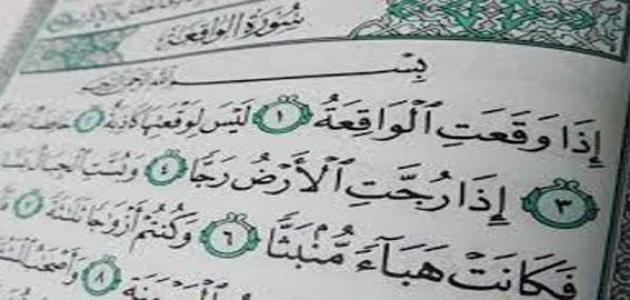 سُورَةُ الْوَاقِعَةِ
بِسْمِ اللَّهِ الرَّحْمَٰنِ الرَّحِيمِ
إِذَا وَقَعَتِ ٱلْوَاقِعَةُ ١ لَيْسَ لِوَقْعَتِهَا كَاذِبَةٌ ٢ خَافِضَةٌ
٣ إِذَا رُجَّتِ ٱلْأَرْضُ رَجًّا ٤ وَبُسَّتِ ٱلْجِبَالُ
فَكَانَتْ هَبَآءً مُّنۢبَثًّا ٦ وَكُنتُمْ أَزْوَٰجًا ثَلَٰثَةً ٧
٨ وَأَصْحَٰبُ